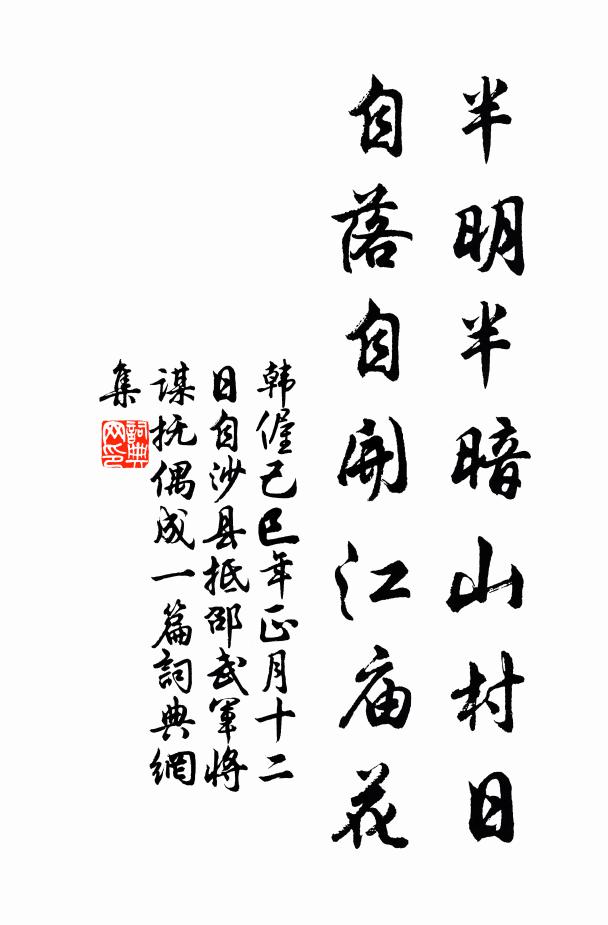 半明半暗山村日
自落自開江庙花
韩偓己巳年正月十二
日自沙县抵邵武軍将
谋抚偶成一篇詞典網
集
詞典
网印